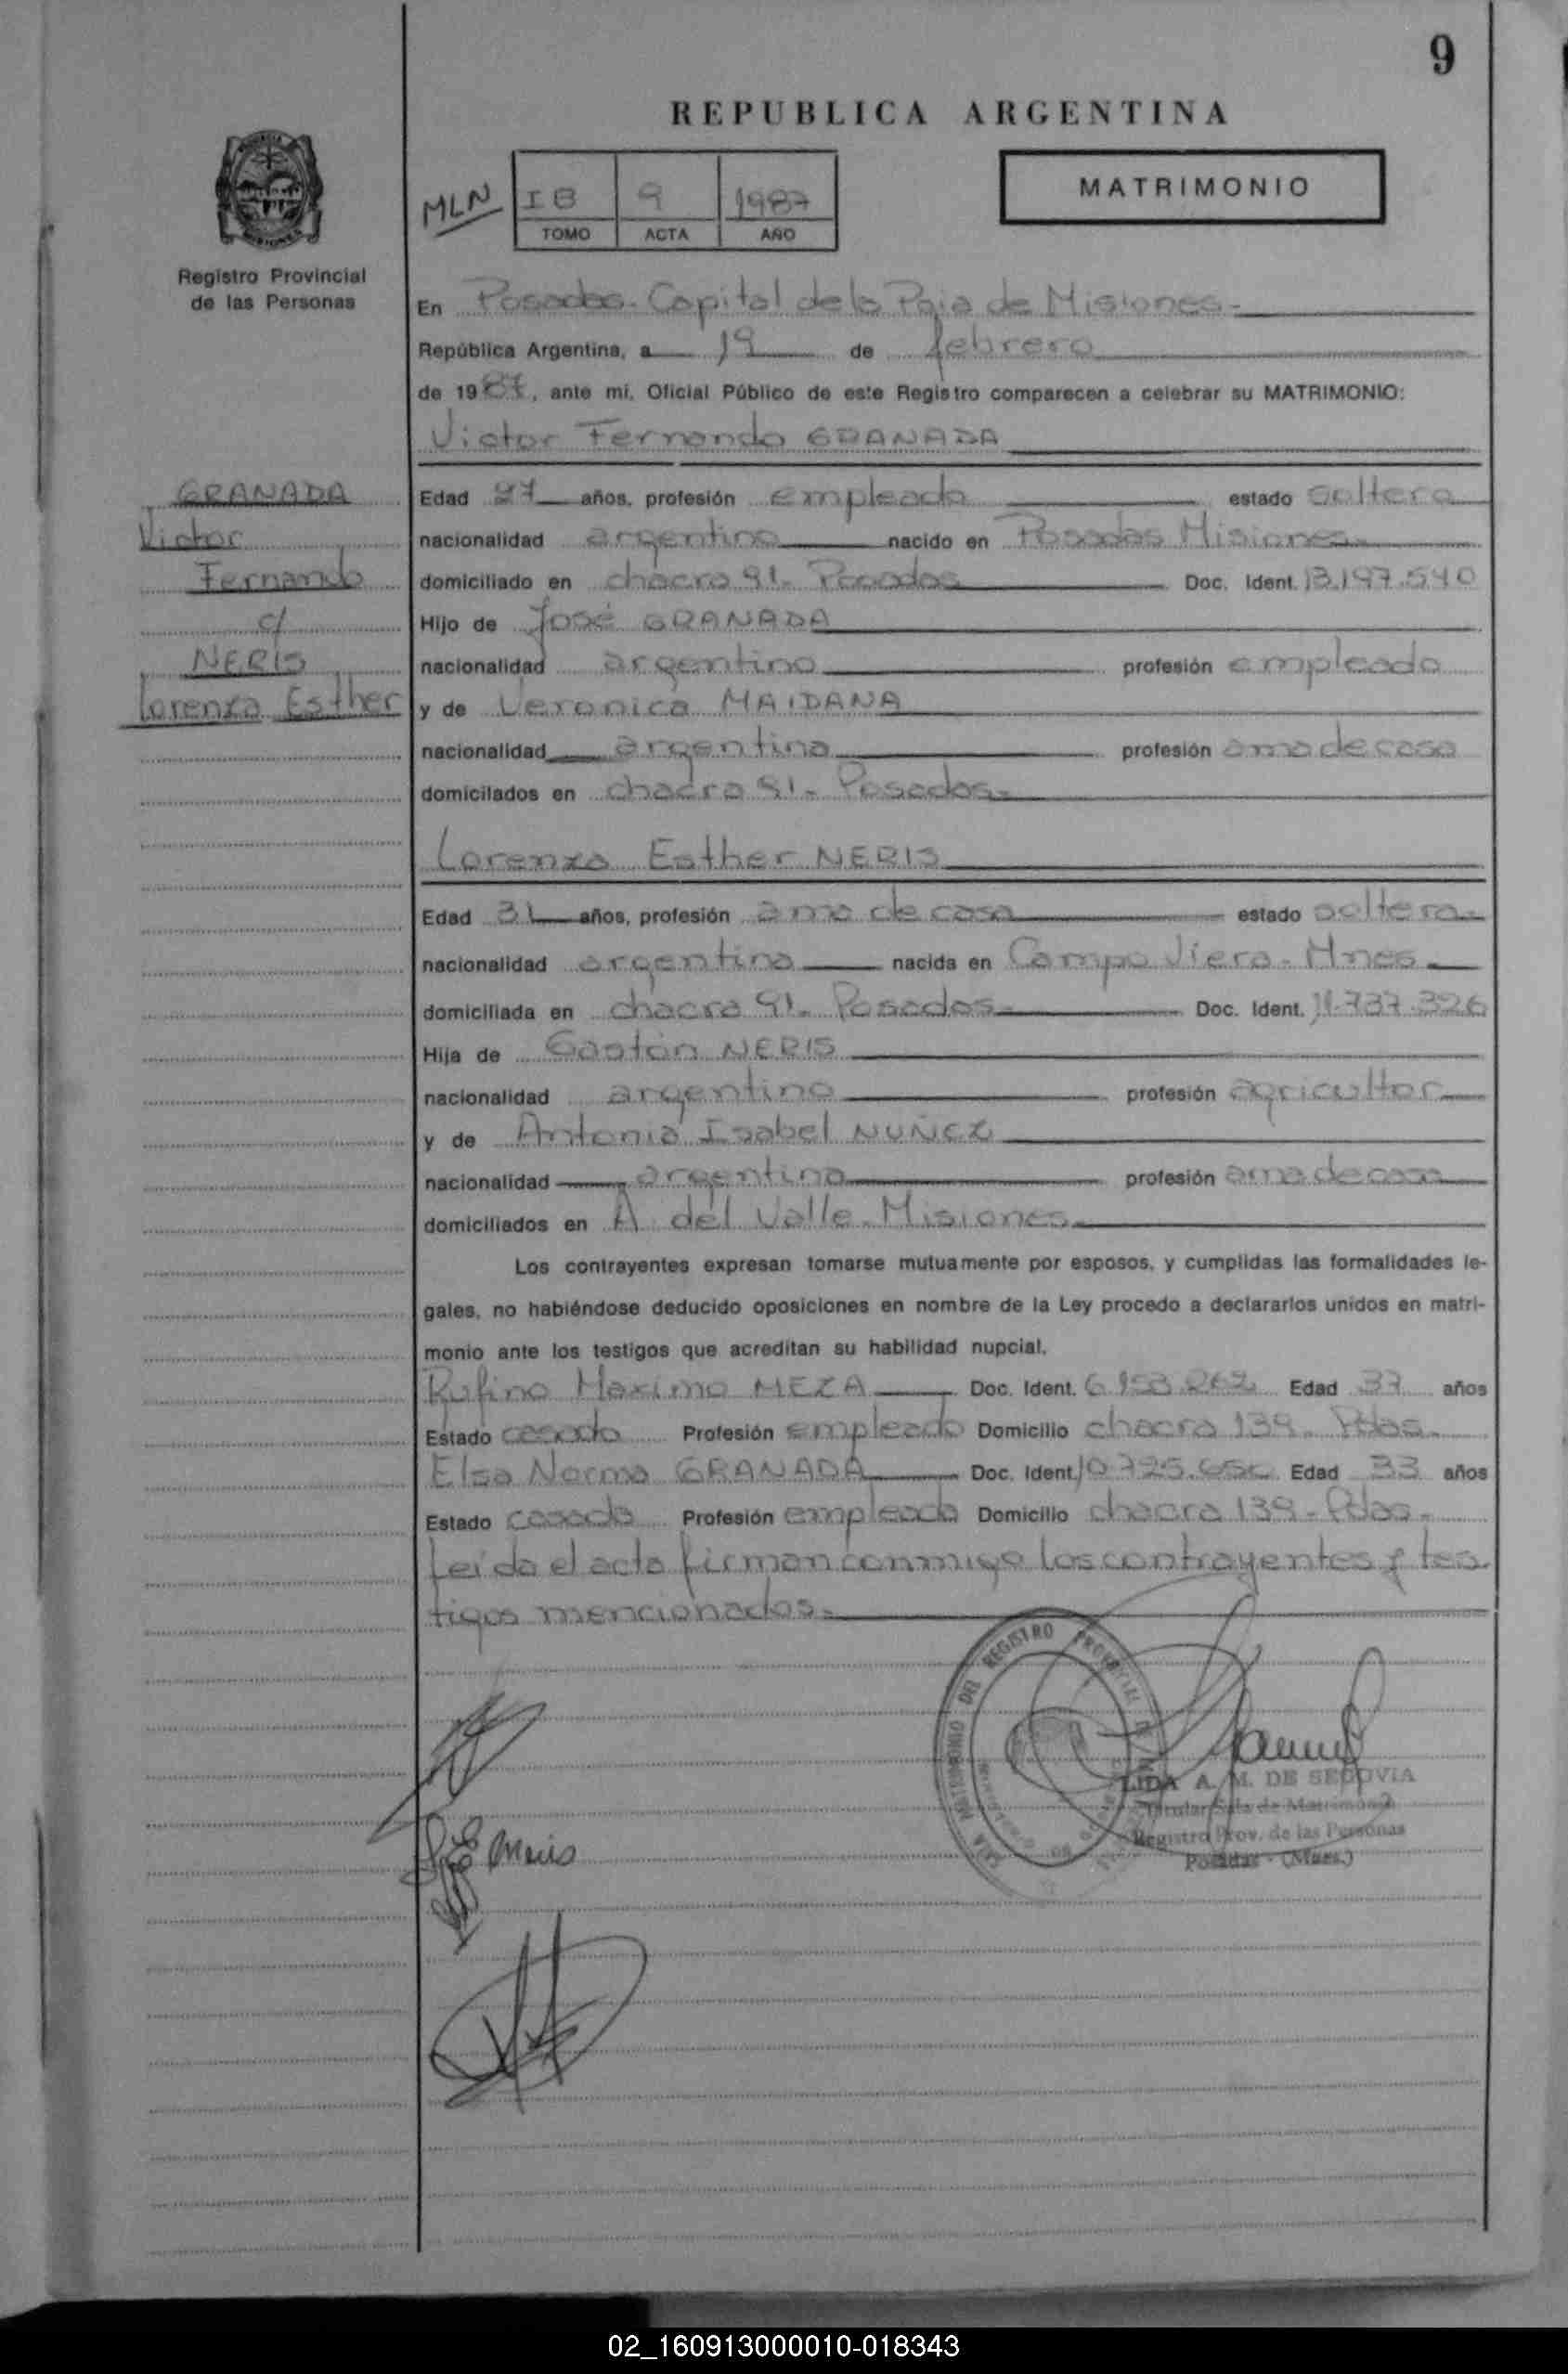 9
REPUBLICA ARGENTINA
MLN
IB 9 1987
TOMO ACTA AÑO
MATRIMONIO
Registro Provincial
de las Personas
En Posadas - Capital de la Pcia de Misiones -
República Argentina, a 19 de febrero
de 1987, ante mí, Oficial Público de este Registro comparecen a celebrar su MATRIMONIO:
Victor Fernando GRANADA
GRANADA
Victor
Fernando
c/
NERIS
Lorenza Esther
Edad 27 años, profesión empleado estado soltero
nacionalidad argentina nacido en Posadas Misiones.
domiciliado en chacra 91. Posadas Doc. Ident. 13.197.540
Hijo de José GRANADA
nacionalidad argentino profesión empleado
y de Veronica MAIDANA
nacionalidad argentina profesión ama de casa
domicilados en chacra 91. Posadas.
Lorenza Esther NERIS
Edad 31 años, profesión ama de casa estado soltera.
nacionalidad argentina nacida en Campo Viera - Mnes
domiciliada en chacra 91. Posadas. Doc. Ident. 11.737.326
Hija de Gastón NERIS
nacionalidad argentino profesión agricultor
y de Antonia Isabel NUÑEZ
nacionalidad argentina profesión ama de casa
domiciliados en A del Valle - Misiones
Los contrayentes expresan tomarse mutuamente por esposos, y cumplidas las formalidades le-
gales, no habiéndose deducido oposiciones en nombre de la Ley procedo a declararlos unidos en matri-
monio ante los testigos que acreditan su habilidad nupcial.
Rufino Maximo MEZA Doc. Ident. Edad 37 años
Estado casado Profesión empleado Domicilio chacra 139 - Pdas.
Elsa Norma GRANADA Doc. Ident. Edad 33 años
Estado casada Profesión empleada Domicilio chacra 139 - Pdas.
Leída el acta firman conmigo los contrayentes y tes-
tigos mencionados.
DEL REGISTRO PROVINCIAL
LIDA A. M. DE SEGOVIA
Titular Sala de Matrimonio
Registro Prov. de las Personas
Posadas - (Mnes.)
02_160913000010-018343